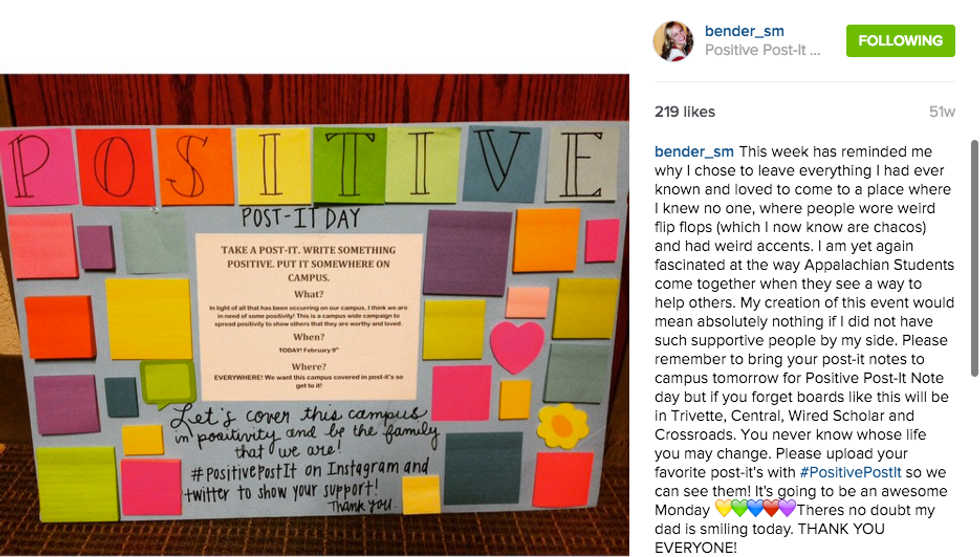 POSITIVE
POST-IT DAY
TAKE A POST-IT. WRITE SOMETHING
POSITIVE. PUT IT SOMEWHERE ON
CAMPUS.
What?
In light of all that has been occurring on our campus, I think we are
in need of some positivity! This is a campus wide campaign to
spread positivity to show others that they are worthy and loved.
When?
TODAY! February 9th
Where?
EVERYWHERE! We want this campus covered in post-it's so
get to it!
Let's cover this campus
in positivity and be the family
that we are!
#positivepostIt on Instagram and
twitter to show your support!
Thank you.
bender_sm
Positive Post-It ...
FOLLOWING
219 likes
51w
bender_sm This week has reminded me
why I chose to leave everything I had ever
known and loved to come to a place where
I knew no one, where people wore weird
flip flops (which I now know are chacos)
and had weird accents. I am yet again
fascinated at the way Appalachian Students
come together when they see a way to
help others. My creation of this event would
mean absolutely nothing if I did not have
such supportive people by my side. Please
remember to bring your post-it notes to
campus tomorrow for Positive Post-It Note
day but if you forget boards like this will be
in Trivette, Central, Wired Scholar and
Crossroads. You never know whose life
you may change. Please upload your
favorite post-it's with #PositivePostIt so we
can see them! It's going to be an awesome
Monday 💛💚💙❤️💜Theres no doubt my
dad is smiling today. THANK YOU
EVERYONE!